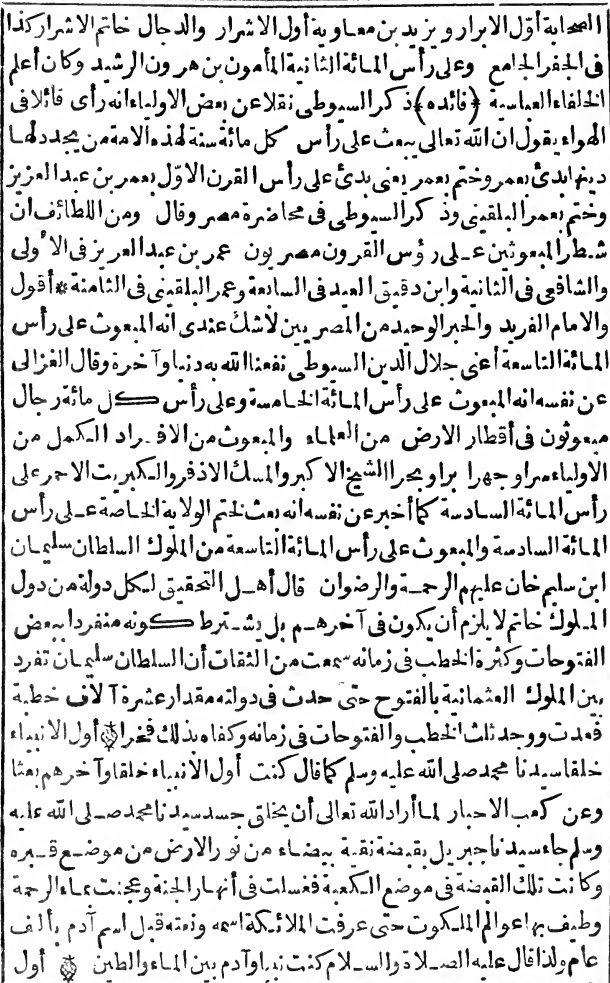 الصحابة أول الابرار ويزيد بن معاوية أول الاشرار والدجال خاتم الاشرار كذا
فى الجفر الجامع وعلى رأس المائة الثانية المأمون بن هرون الرشيد وكان أعلم
الخلفاء العباسية (فائده) ذكر السيوطى نقلا عن بعض الاولياء انه رأى قائلا فى
الهواء يقول ان الله تعالى يبعث على رأس كل مائة سنة لهذه الامة من يجدد لها
دينها بدئ بعمر وختم بعمر يعنى بدئ على رأس القرن الاوّل بعمر بن عبد العزيز
وختم بعمر البلقينى وذكر السيوطى فى محاضرة مصر وقال ومن اللطائف ان
شطر المبعوثين على رؤس القرون مصريون عمر بن عبد العزيز فى الاولى
والشافعى فى الثانية وابن دقيق العيد فى السابعة وعمر البلقينى فى الثامنة * أقول
والامام الفريد والحبر الوحيد من المصريين لا شك عندى انه المبعوث على رأس
المائة التاسعة أعنى جلال الدين السيوطى نفعنا الله به دنيا وآخرة وقال الغزالى
عن نفسه انه المبعوث على رأس المائة الخامسة وعلى رأس كل مائة رجال
مبعوثون فى أقطار الارض من العلماء والمبعوث من الافراد الكمل من
الاولياء سرا وجهرا برا وبحرا الشيخ الاكبر والمسك الاذفر والكبريت الاحمر على
رأس المائة السادسة كما أخبر عن نفسه انه بعث لختم الولاية الخاصة على رأس
المائة السادسة والمبعوث على رأس المائة التاسعة من الملوك السلطان سليمان
ابن سليم خان عليهم الرحمة والرضوان قال أهل التحقيق لكل دولة من دول
الملوك خاتم لا يلزم أن يكون فى آخرهم بل يشترط كونه منفردا ببعض
الفتوحات وكثرة الخطب فى زمانه سمعت من الثقات أن السلطان سليمان تفرد
بين الملوك العثمانية بالفتوح حتى حدث فى دولته مقدار عشرة آلاف خطبة
فعدت ووجد ثلث الخطب والفتوحات فى زمانه وكفاه بذلك فخرا أول الانبياء
خلقا سيدنا محمد صلى الله عليه وسلم كما قال كنت أول الانبياء خلقا وآخرهم بعثا
وعن كعب الاحبار لما أراد الله تعالى أن يخلق جسد سيدنا محمد صلى الله عليه
وسلم جاء سيدنا جبريل بقبضة نقية بيضاء من نور الارض من موضع قبره
وكانت تلك القبضة فى موضع الكعبة فغسلت فى أنهار الجنة وعجنت بماء الرحمة
وطيف بها عوالم الملكوت حتى عرفت الملائكة اسمه ونعته قبل اسم آدم بألف
عام ولذا قال عليه الصلاة والسلام كنت نبيا وآدم بين الماء والطين أول